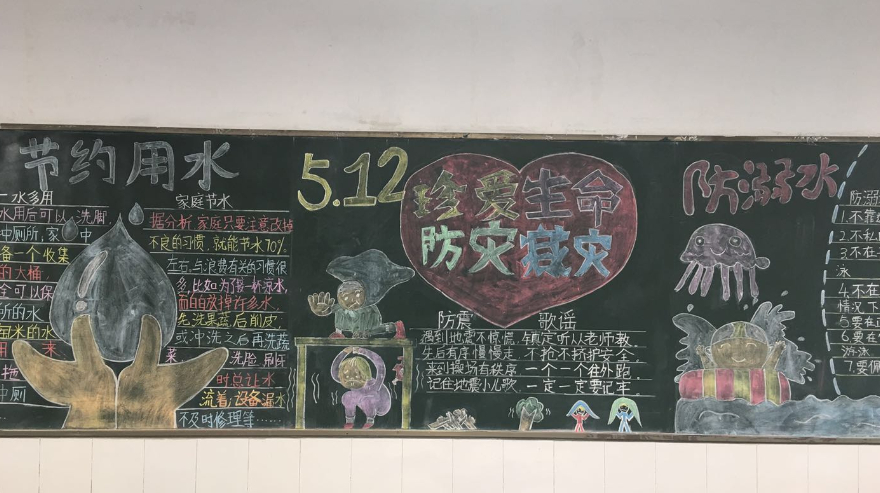 节约用水
一水多用
水用后可以 洗脚
冲厕所,家 中
备一个收集
的大桶
全可以保
所的水
每米的水
用 来
冲厕
家庭节水
据分析,家庭只要注意改掉
不良的习惯,就能节水70%.
左右,与浪费有关的习惯很
多,比如为
而白白放掉许多水
先洗果蔬后削皮,
或冲洗之后再洗蔬
来 洗脸 刷牙
时总让水
流着,设备漏水
不及时修理等……
5.12
珍爱生命
防灾减灾
防震 歌谣
遇到地震不惊慌,镇定听从老师教
先后有序慢慢走 不抢不挤护安全
来到操场有秩序 一个一个在外路
记住地震小儿歌 一定一定要记牢
防溺水
防溺
1.不靠
2.不私
3.不在
泳
4.不在
情况下
5.要在
6.要在
游泳
7.要佩